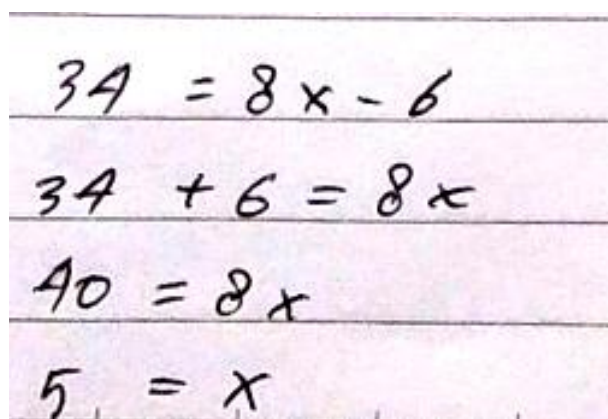 34 = 8x - 6
34 + 6 = 8x
40 = 8x
5 = x